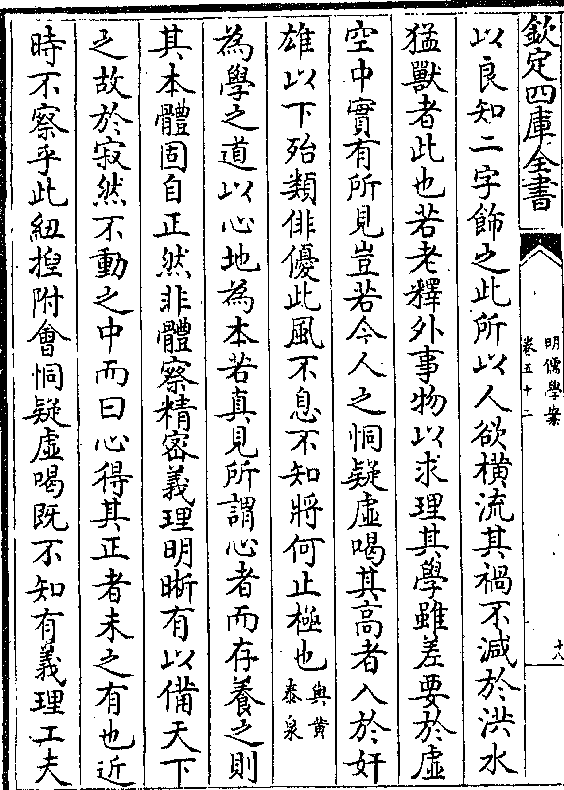 欽定四庫全書
明儒學案
卷五十二
十八
以良知二字飾之此所以人欲橫流其禍不減於洪水
猛獸者此也若老釋外事物以求理其學雖差要於虛
空中實有所見豈若今人之恫疑虛喝其高者入於奸
雄以下殆類俳優此風不息不知將何止極也與黃泰泉
為學之道以心地為本若真見所謂心者而存養之則
其本體固自正然非體察精密義理明晰有以備天下
之故於寂然不動之中而曰心得其正者未之有也近
時不察乎此紐揑附會恫疑虛喝既不知有義理工夫